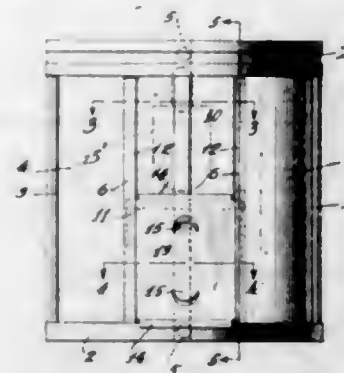 5 5
2
3 10 3
4 15' 12 12
3 6 6
11
15
13
4 4
15
2 14 5 5